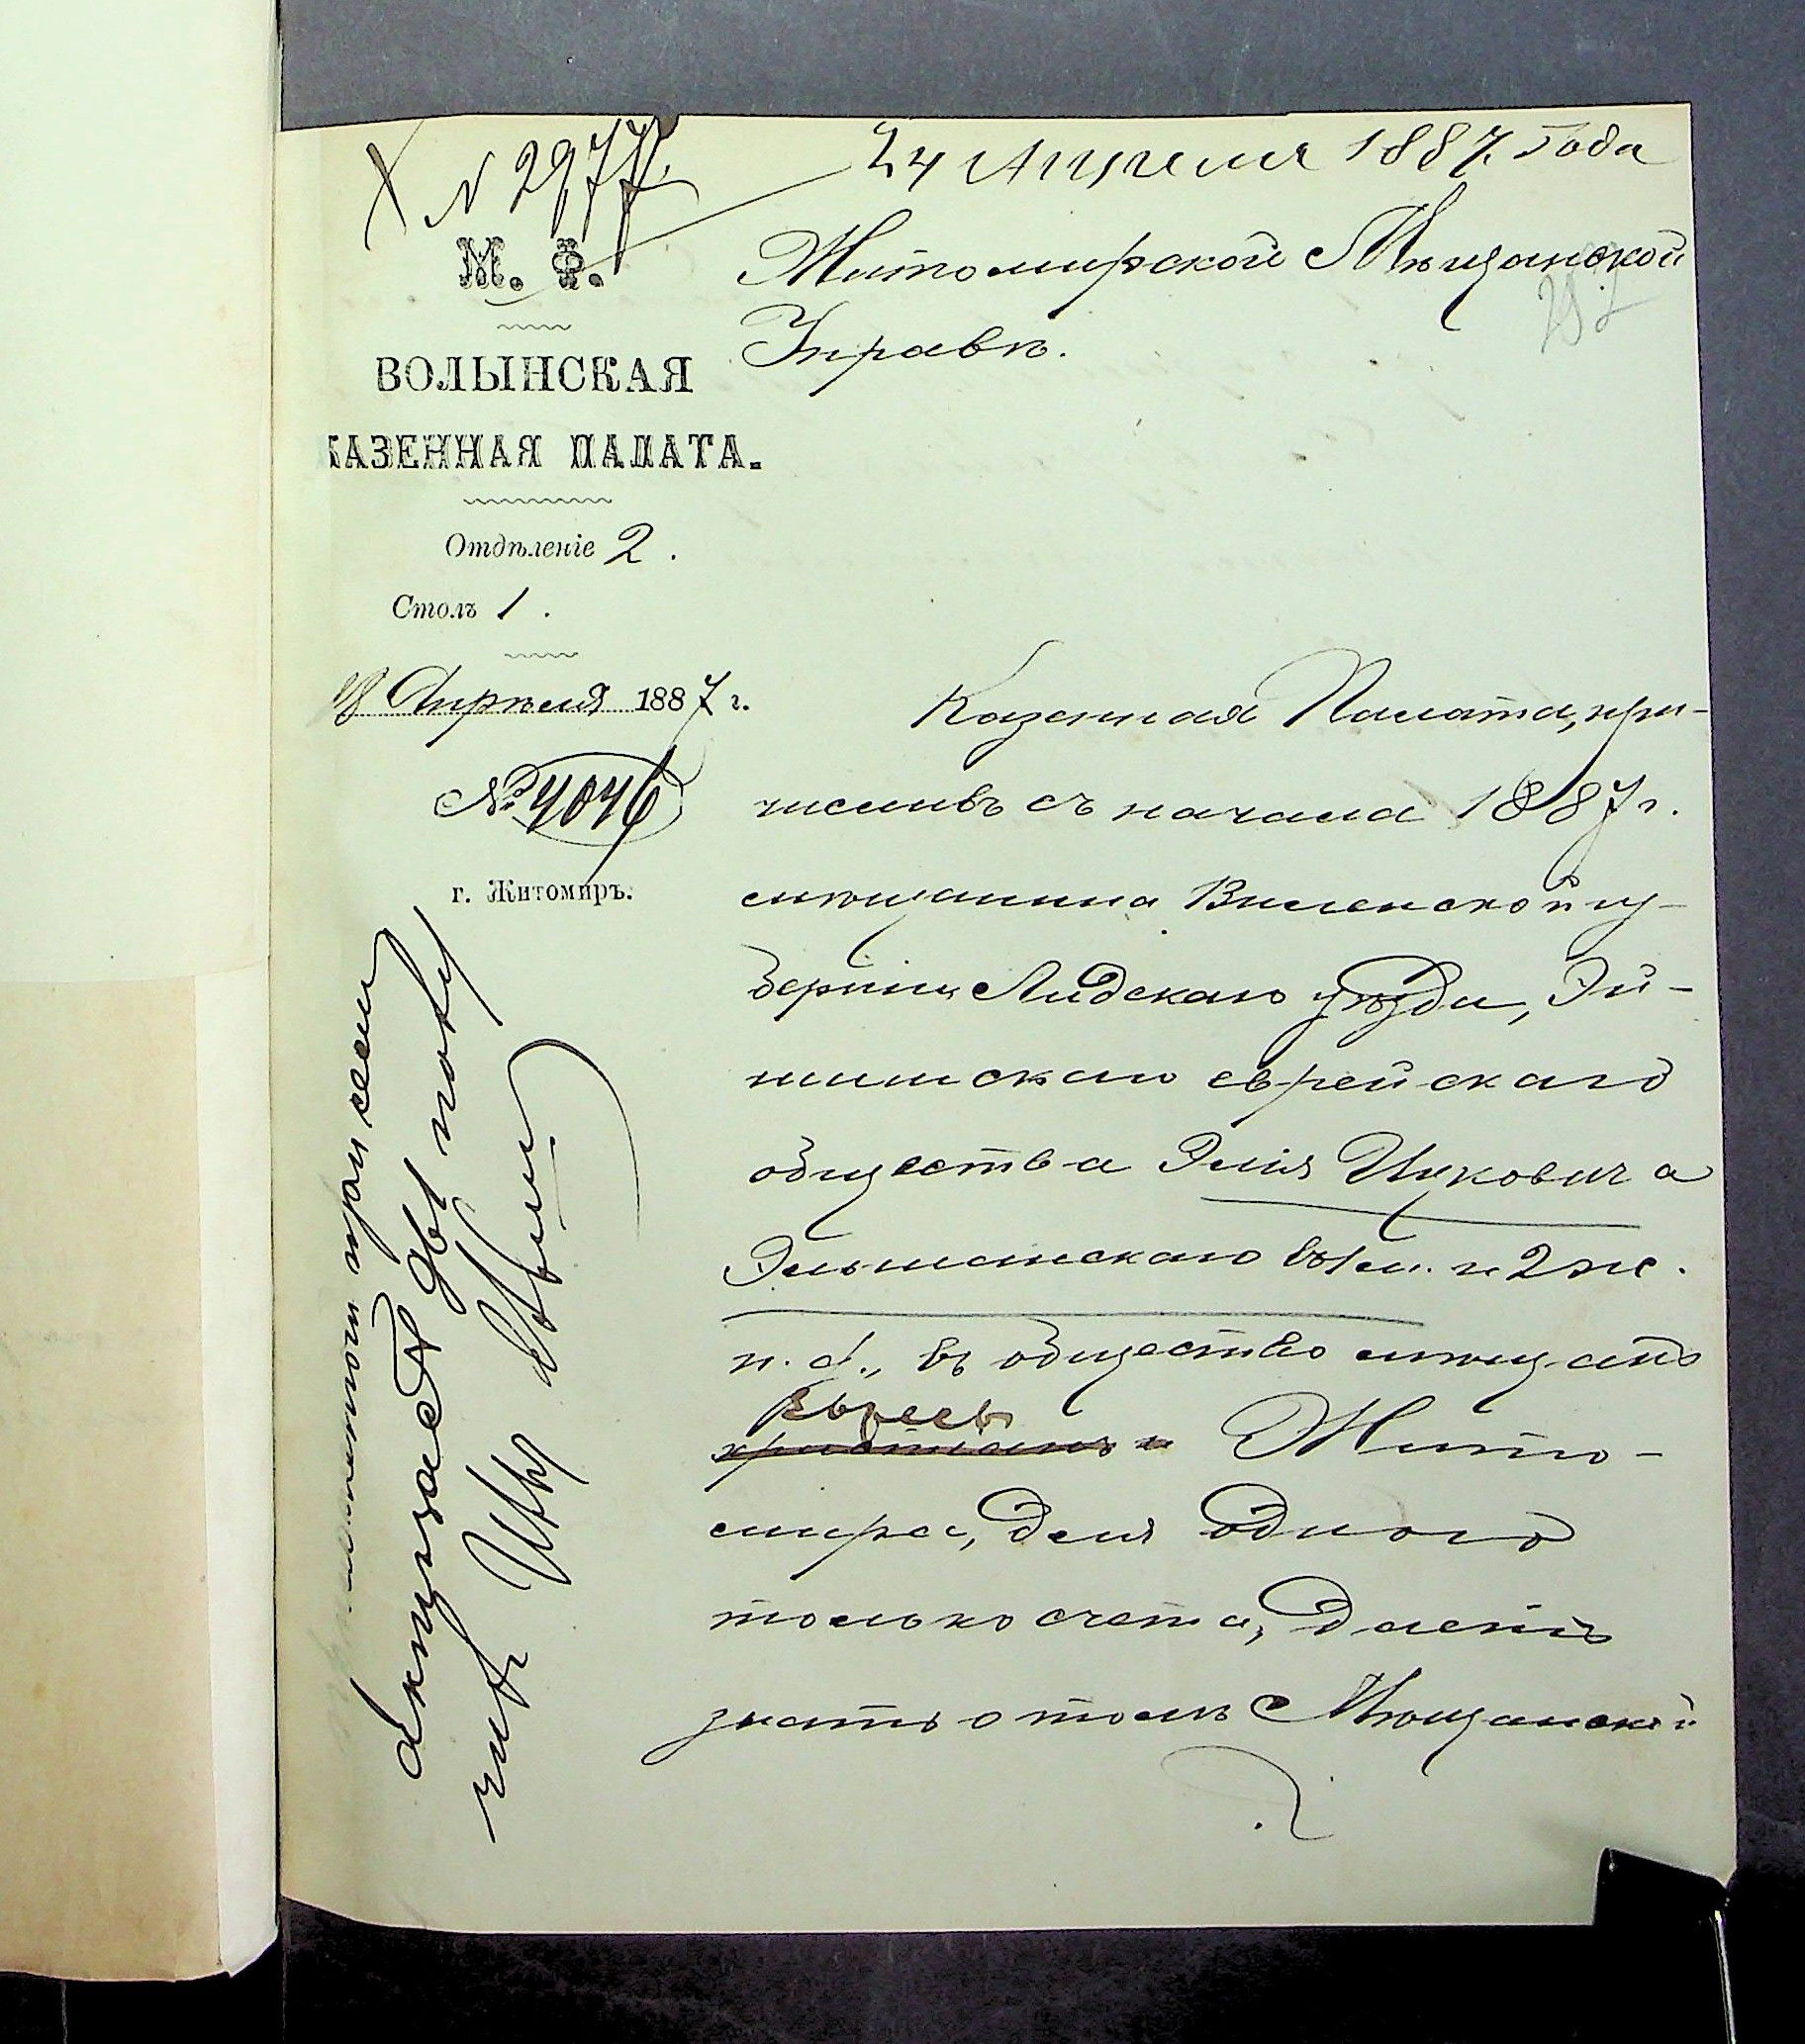 N 2977.
24 Апреля 1887 Года
М. Ф.
Житомирской Мѣщанской
Управѣ.
ВОЛЫНСКАЯ
КАЗЕННАЯ ПАЛАТА.
Отдѣленіе 2.
Столъ 1.
18 Апрѣля 1887 г.
№ 4046
г. Житомиръ.
Казенная Палата, при-
числивъ съ начала 1887 г.
мѣщанина Виленской гу-
берніи Лидскаго уѣзда, Эй-
шишскаго еврейскаго
общества Элія Ицковича
Эльманскаго въ 1 м. и 2 ж.
п. д., въ общество мѣщанъ
евреевъ
христіанъ г. Жито-
мира, для одного
только счета, даетъ
знать о томъ Мѣщанской